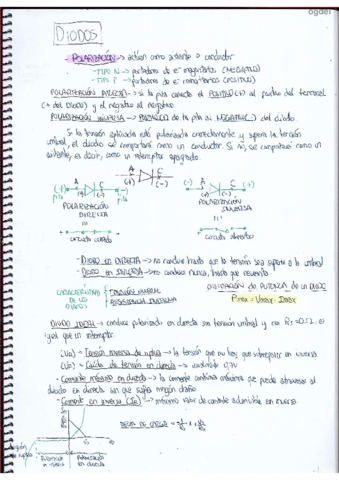 DIODOS
POLARIZACIÓN → actúan como aislante o conductor
- TIPO N → portadores de e⁻ mayoritarios (NEGATIVO)
- TIPO P → portadores de e⁻ minoritarios (POSITIVO)
POLARIZACIÓN DIRECTA → si la pila conecta el POSITIVO (+) al positivo del terminal
(+ del DIODO) y el negativo al negativo.
POLARIZACIÓN INVERSA → POSITIVO de la pila al NEGATIVO (-) del diodo.
Si la tensión aplicada está polarizada correctamente y supera la tensión
umbral, el diodo se comportará como un conductor. Si no, se comportará como un
aislante, es decir, como un interruptor apagado.
A C
(+) (-)
(-) A C (+)
pila (+) (-) pila
POLARIZACIÓN
DIRECTA
POLARIZACIÓN
INVERSA
circuito cerrado
circuito abierto
- DIODO EN DIRECTA → no conduce hasta que la tensión sea superior a la umbral
- DIODO EN INVERSA → no conduce nunca, hasta que revienta
CARACTERÍSTICAS
DE LOS
DIODOS
TENSIÓN UMBRAL
RESISTENCIA INTERNA
DISIPACIÓN DE POTENCIA DE UN DIODO
Pmax = Vmax · Imax
DIODO IDEAL → conduce polarizado en directa sin tensión umbral y con RI = 0Ω, es
igual que un interruptor.
- Tensión inversa de ruptura → la tensión que no hay que sobrepasar en inversa
(VD) → Caída de tensión en directa → 0,7V
- Corriente máxima en directa → la corriente continua máxima que puede atravesar al
diodo en directa sin que sufra ningún daño
- Corriente en inversa (IR) → máximo valor de corriente admisible en inversa
RECTA DE CARGA